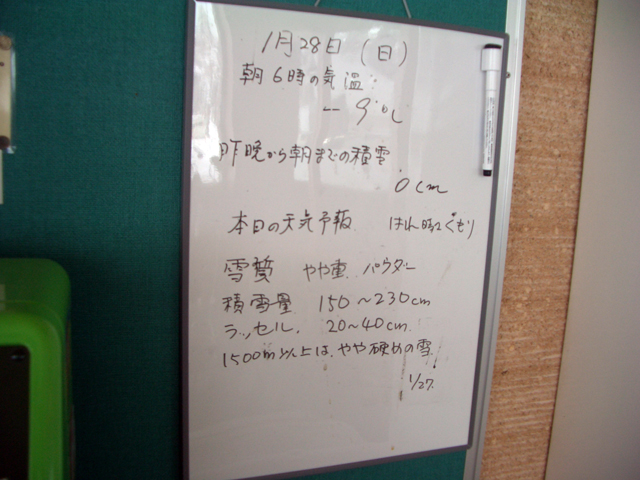 1月28日(日)
朝6時の気温
-9℃
昨晩から朝までの積雪
0cm
本日の天気予報 はれ時々くもり
雪質 やや重 パウダー
積雪量 150~230cm
ラッセル. 20~40cm.
1500m以上は、やや硬めの雪.
1/27.